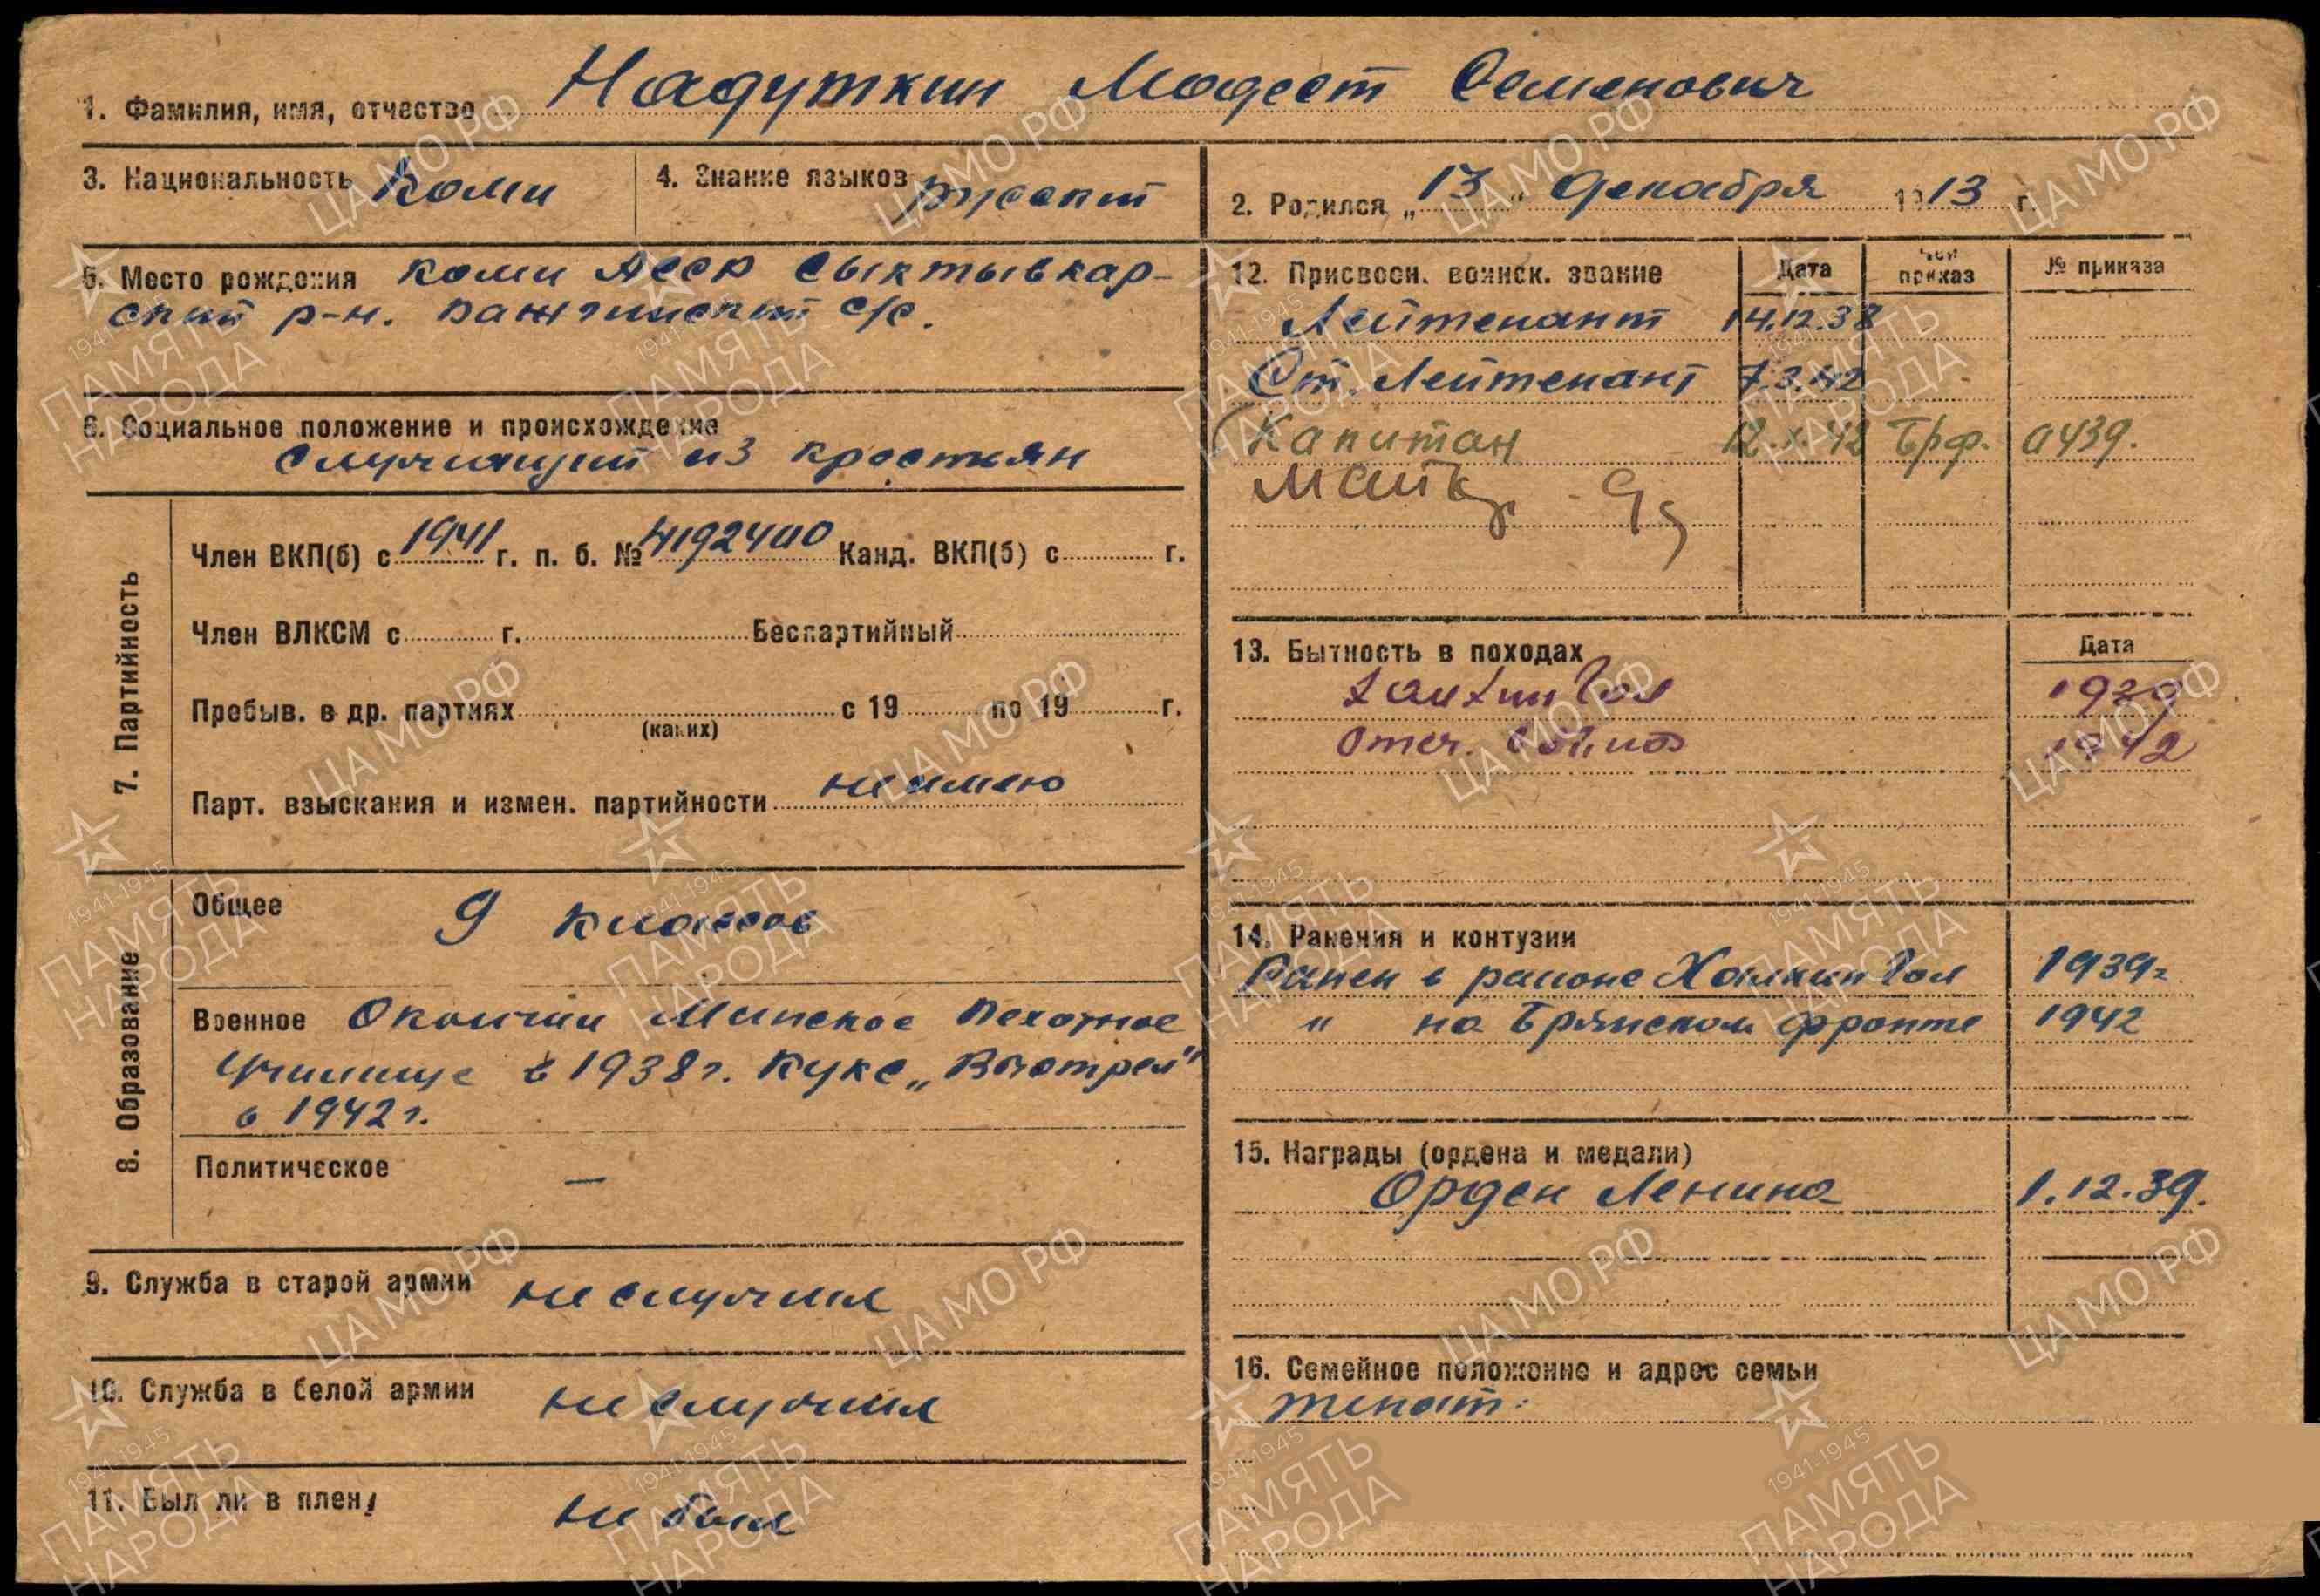 1. Фамилия, имя, отчество Надуткин Модест Семенович
3. Национальность Коми
4. Знание языков русский
2. Родился "13" декабря 1913 г.
5. Место рождения Коми АССР Сыктывкар-
ский р-н. Важгинский с/с.
6. Социальное положение и происхождение
Служащий из крестьян
7. Партийность
Член ВКП(б) с 1941 г. п. б. № 4192400 Канд. ВКП(б) с г.
Член ВЛКСМ с г. Беспартийный
Пребыв. в др. партиях с 19 по 19 г.
(каких)
Парт. взыскания и измен. партийности не имею
8. Образование
Общее 9 классов
Военное Окончил Минское Пехотное
Училище в 1938 г. Кукс „Выстрел"
в 1942 г.
Политическое —
9. Служба в старой армии не служил
10. Служба в белой армии не служил
11. Был ли в плену не был
12. Присвоен. воинск. звание Дата Чей приказ № приказа
Лейтенант 14.12.38
Ст. Лейтенант 7.3.42
Капитан 12.X.42 Брф. 0439.
Майор
13. Бытность в походах Дата
Халхин Гол 1939
Отеч. война 1942
14. Ранения и контузии
Ранен в районе Халхин Гол 1939 г.
" на Брянском фронте 1942
15. Награды (ордена и медали)
Орден Ленина 1.12.39.
16. Семейное положение и адрес семьи
женат.
ЦАМО РФ
1941-1945
ПАМЯТЬ
НАРОДА